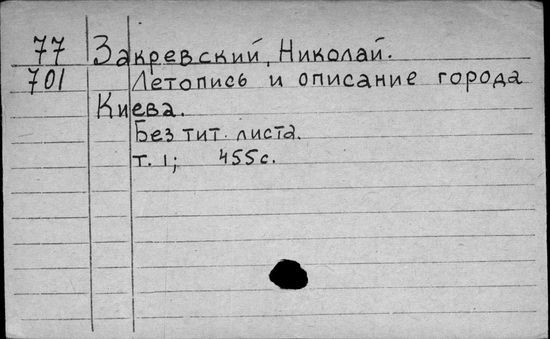 77 Закревский, Николай.
701 Летопись и описание города
Киева.
Без тит. листа.
т. 1; 455с.